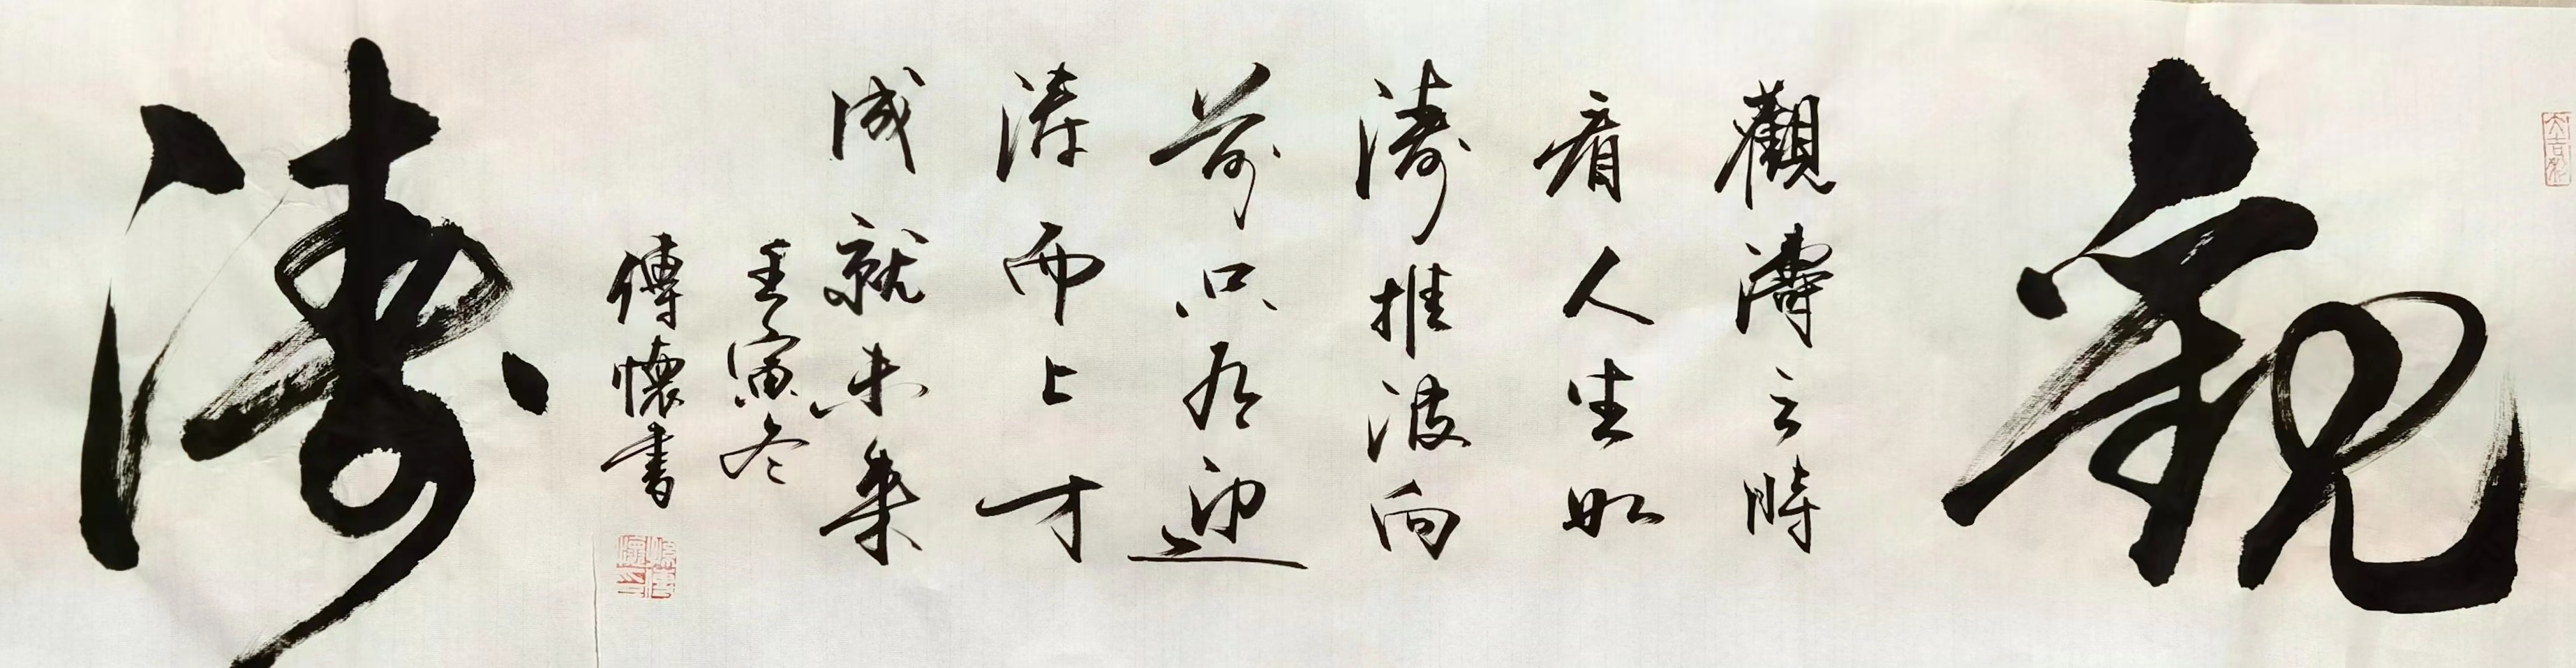 觀
觀濤之時
看人生如
濤推波向
前只有迎
涛而上才
成就未來
壬寅冬
傳懷書
濤